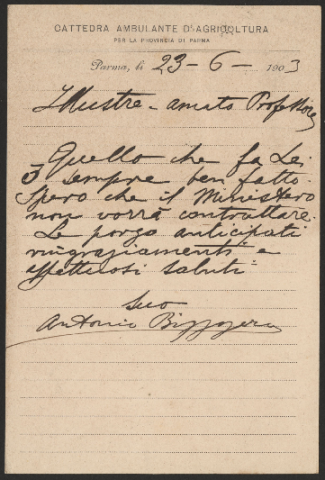 CATTEDRA AMBULANTE D'AGRICOLTURA
PER LA PROVINCIA DI PARMA
Parma, li 23-6-1903
Illustre - amato Professore
Quello che fa Lei
È sempre ben fatto.
Spero che il Ministero
non vorrà contrattare.
Le porgo anticipati
ringraziamenti e
affettuosi saluti
Suo
Antonio Bizzozero